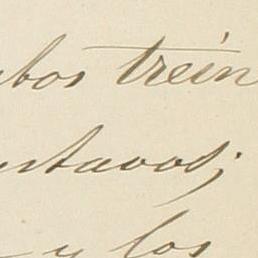 bos trein
stavos;
y los